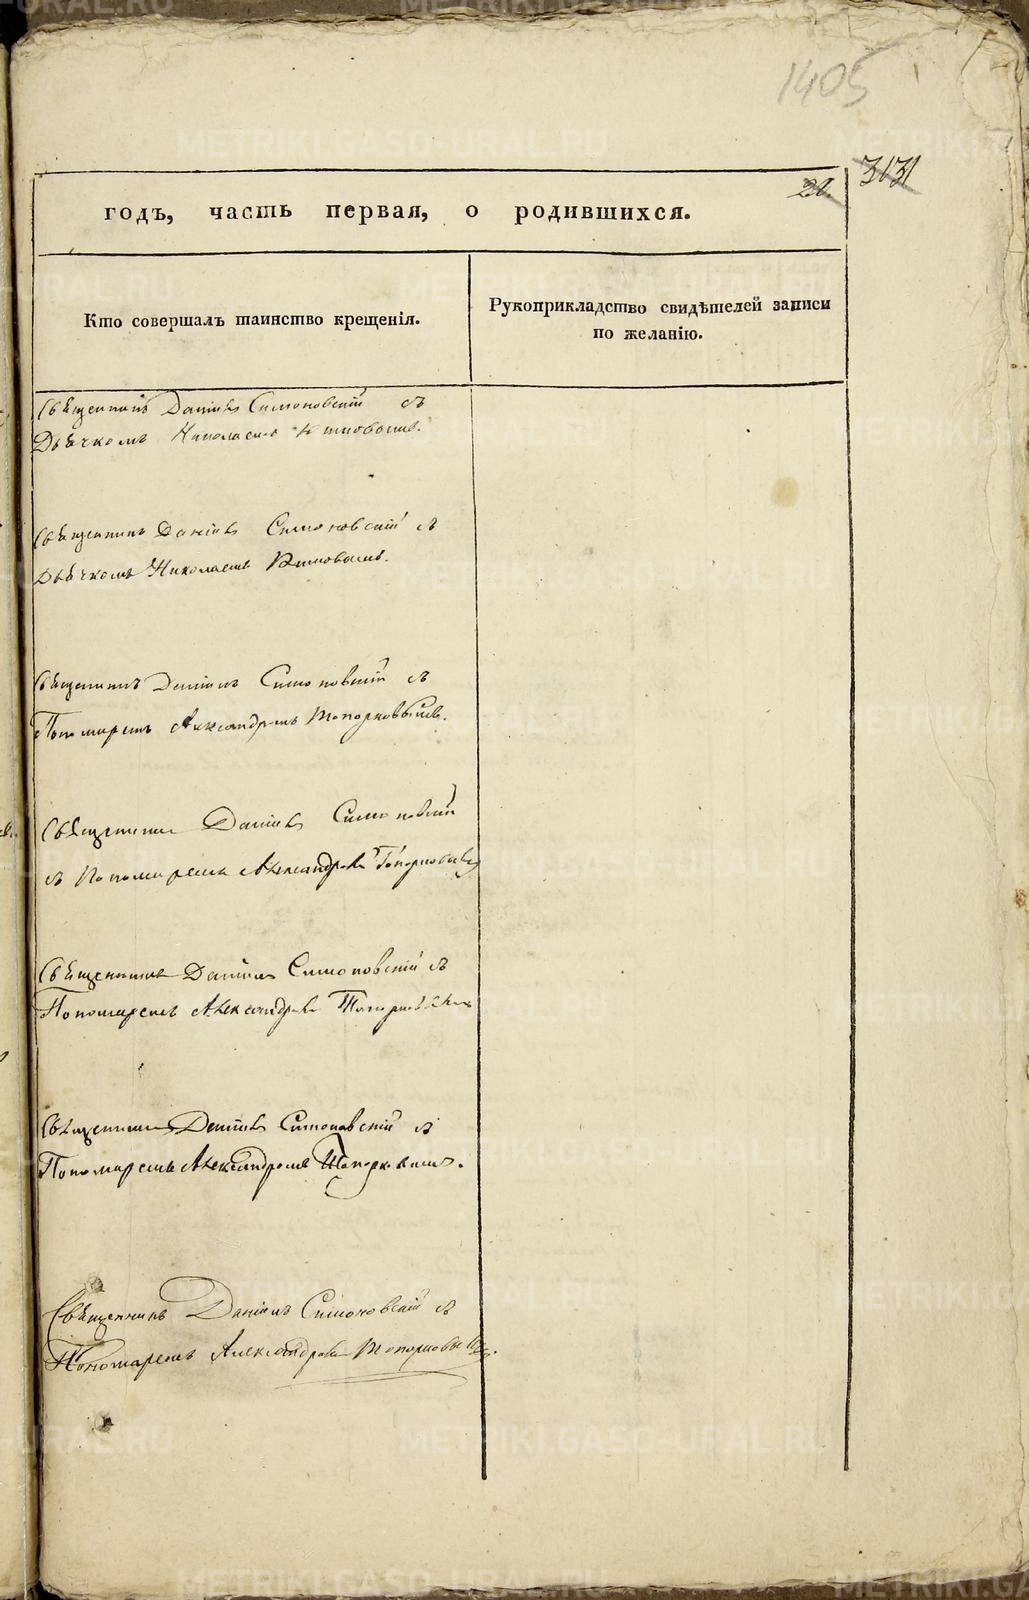 1405
3131
20.
годъ, часть первая, о родившихся.
Кто совершалъ таинство крещенія.
Рукоприкладство свидѣтелей записи
по желанію.
Священникъ Даніилъ Симоновскій съ
Дьячкомъ Николаемъ
Священникъ Даніилъ Симоновскій съ
Дьячкомъ Николаемъ
Священникъ Даніилъ Симоновскій съ
Пономаремъ Александромъ Топорковымъ.
Священникъ Даніилъ Симоновскій
съ Пономаремъ Александромъ Топорковымъ
Священникъ Даніилъ Симоновскій съ
Пономаремъ Александромъ Топорковымъ
Священникъ Даніилъ Симоновскій съ
Пономаремъ Александромъ Топорковымъ.
Священникъ Даніилъ Симоновскій съ
Пономаремъ Александромъ Топорковымъ.
METRIKI.GASO-URAL.RU